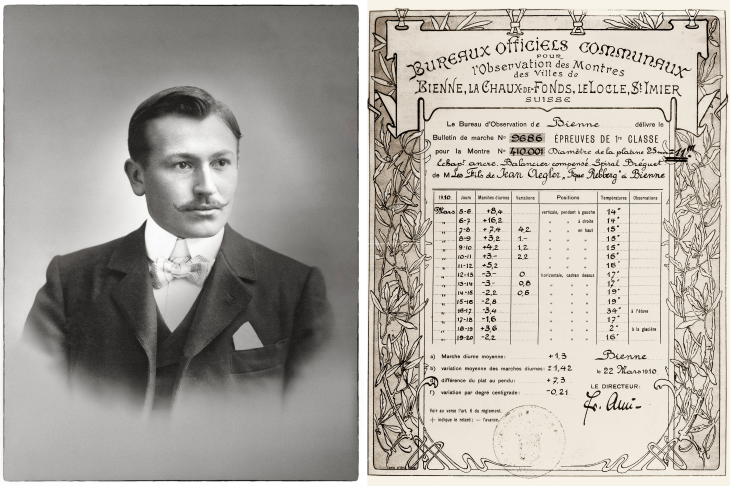 BUREAUX OFFICIELS COMMUNAUX
POUR
l'Observation des Montres
des Villes de
BIENNE, LA CHAUX-DE-FONDS, LE LOCLE, St IMIER
SUISSE
Le Bureau d'Observation de Bienne délivre le
Bulletin de marche No 9686 ÉPREUVES DE 1re CLASSE
pour la Montre No 410.001 Diamètre de la platine 25 mm = 11'''
Echapt ancre. Balancier compensé. Spiral Bréguet
de M Les Fils de Jean Aegler, Fque Rebberg" à Bienne
1910. Jours Marches diurnes Variations Positions Températures Observations
Mars 5-6 +8,4 verticale, pendant à gauche 14°
„ 6-7 +16,2 „ „ à droite 14°
„ 7-8 +7,4 4,2 „ „ en haut 15°
„ 8-9 +3,2 1.- „ „ „ 15°
„ 9-10 +4,2 1,2 „ „ „ 15°
„ 10-11 +3.- 2,2 „ „ „ 16°
„ 11-12 +5,2 „ „ „ 16°
„ 12-13 -3.- 0. horizontale, cadran dessus 17°
„ 13-14 -3.- 0,8 „ „ „ 17°
„ 14-15 -2,2 0,6 „ „ „ 19°
„ 15-16 -2,8 „ „ „ 19°
„ 16-17 -3,4 „ „ „ 34° à l'étuve
„ 17-18 -1,6 „ „ „ 17°
„ 18-19 +3,6 „ „ „ 2° à la glacière
„ 19-20 -2,2 „ „ „ 16°
a) Marche diurne moyenne: +1,3 Bienne
b) variation moyenne des marches diurnes: ±1,42 le 22 Mars 1910.
d) différence du plat au pendu: +7,3
f) variation par degré centigrade: -0,21 LE DIRECTEUR:
Voir au verso l'art. 6 du règlement.
+ indique le retard; - l'avance.